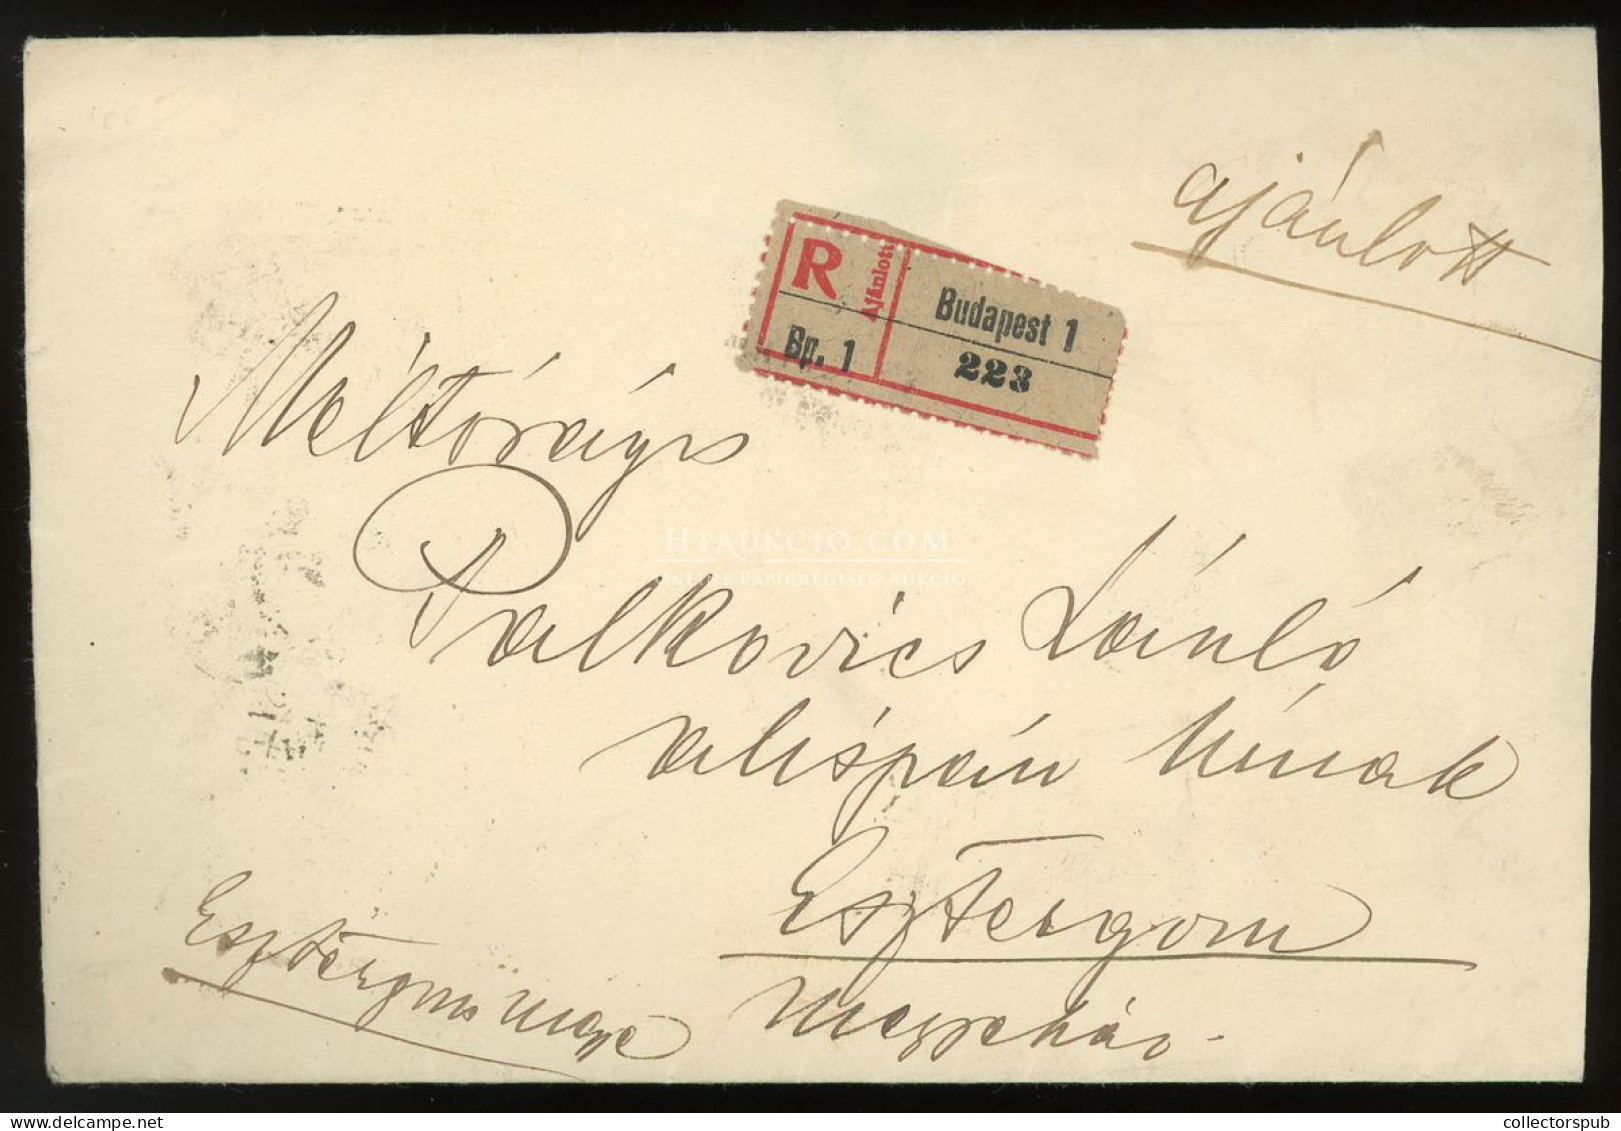 ajánlott
R Ajánlott Budapest 1
Bp. 1 223
Méltóságos
Palkovics László
alispán Úrnak
Esztergom
megyeház.
Esztergom megye
HTAUKCIO.COM
ONLINE PAPÍRRÉGISÉG AUKCIÓ
collectorspub